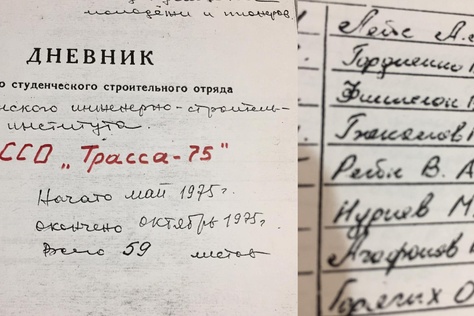 молодёжи и пионеров.
ДНЕВНИК
о студенческого строительного отряда
нского инженерно-строитель-
института.
ССО „Трасса-75"
Начато май 1975г.
окончено октябрь 1975г.
Всего 59 листов
Лейс А.
Гордиенко
Фишелон
Рейн В. А
Нуриев М
Агафонов
Горячих О